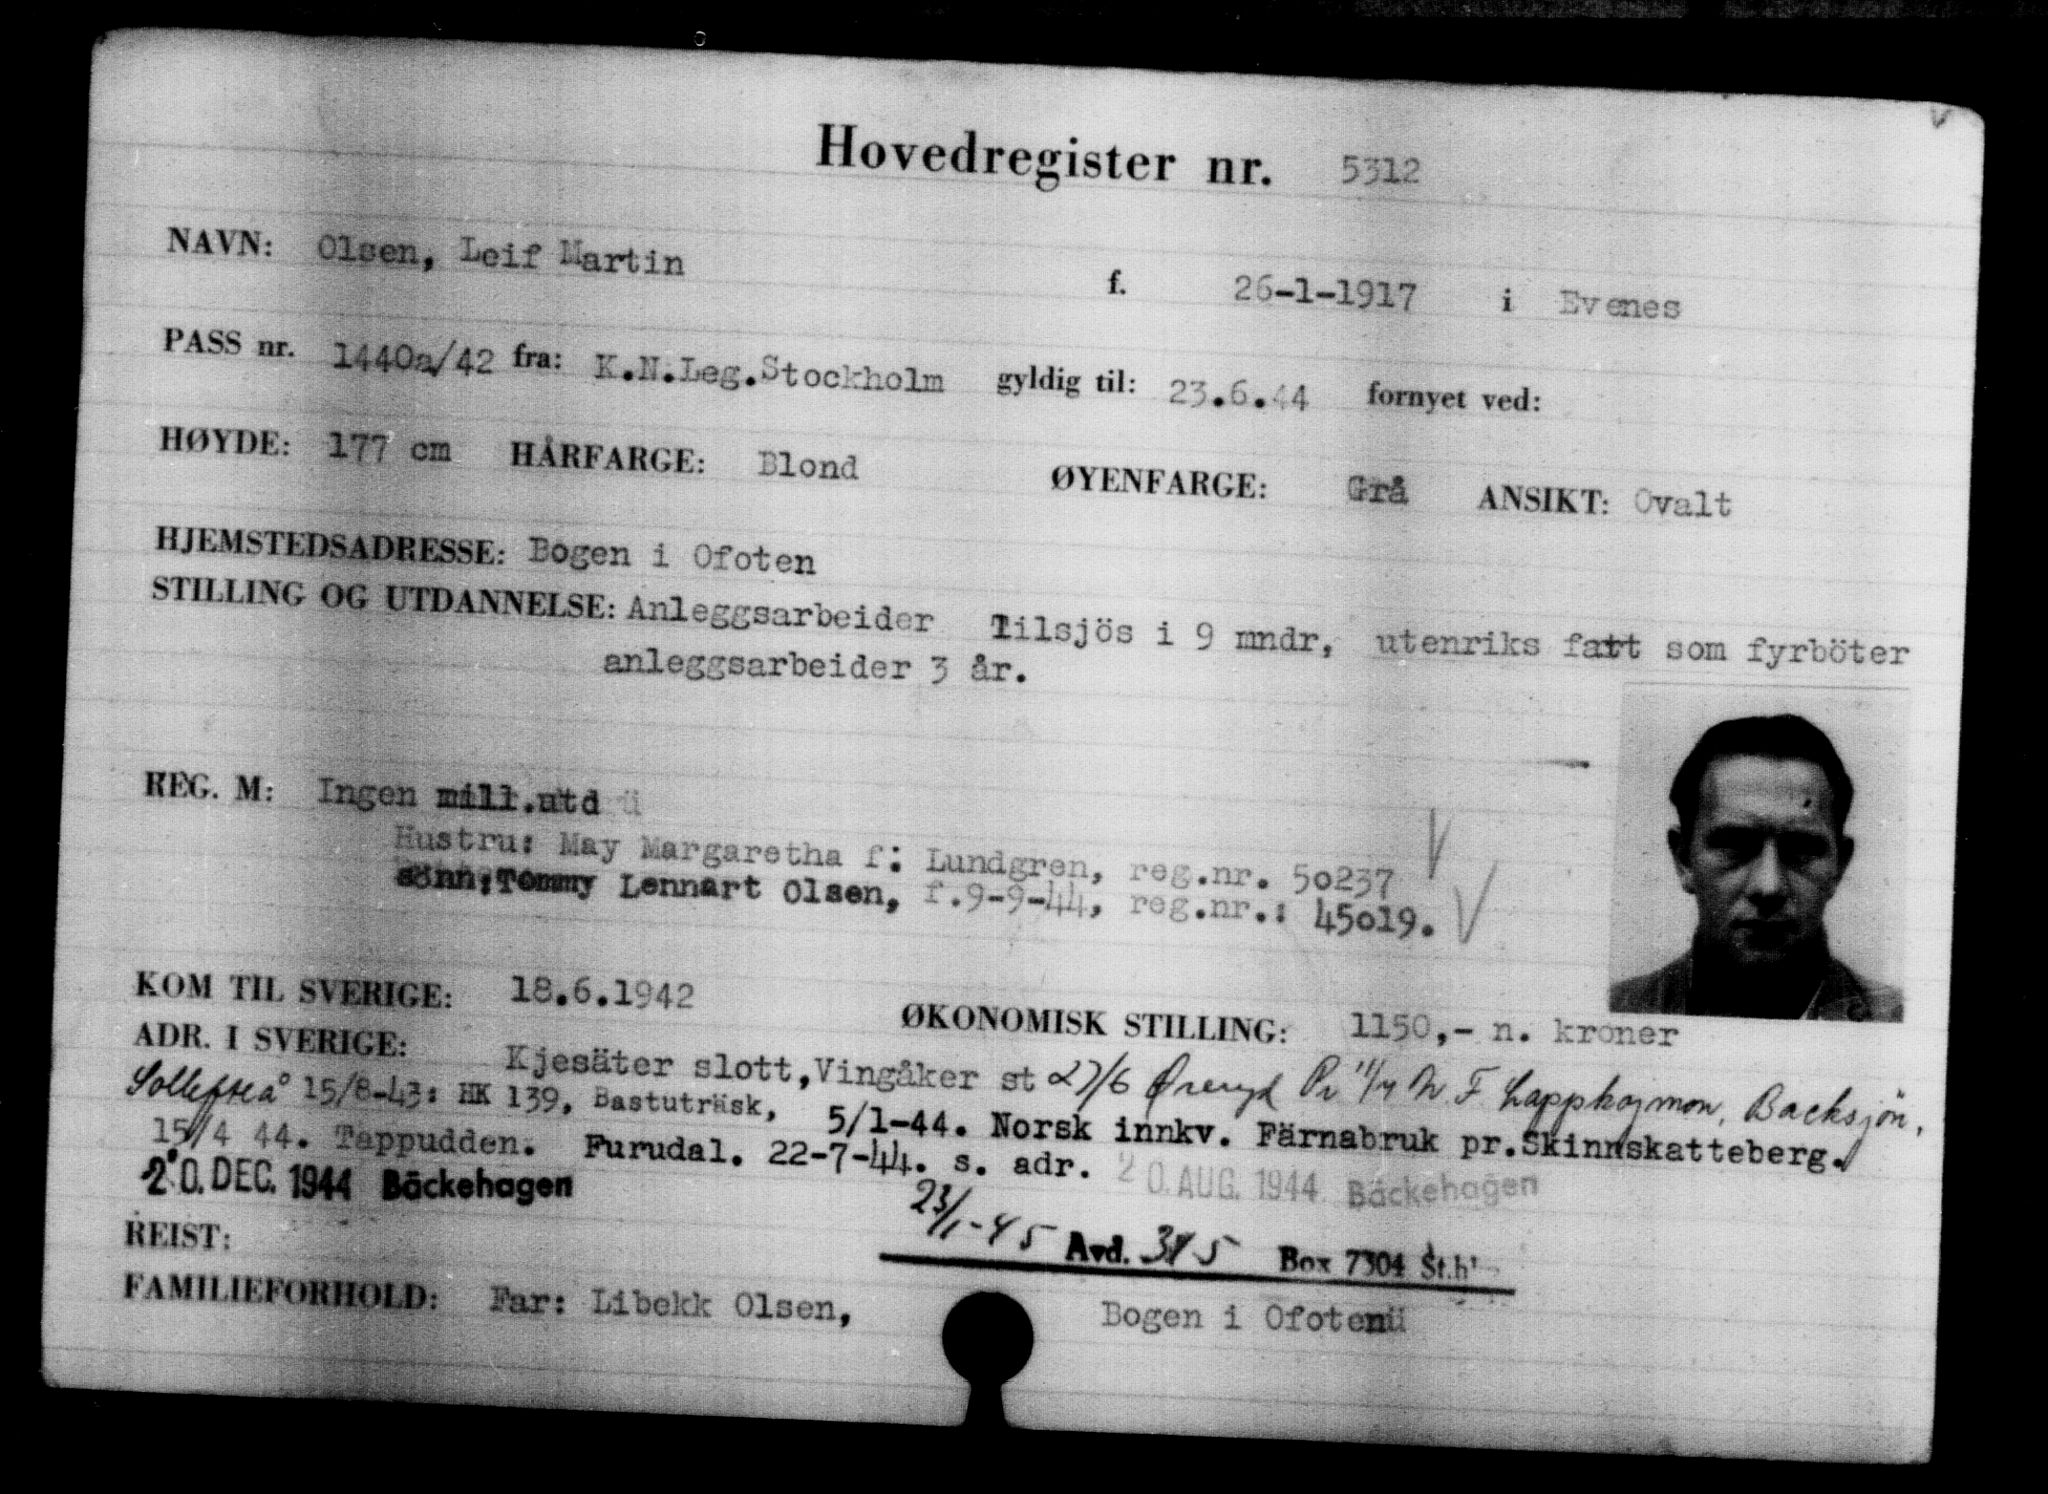 Hovedregister nr. 5312
NAVN: Olsen, Leif Martin f. 26-1-1917 i Evenes
PASS nr. 1440a/42 fra: K.N.Leg.Stockholm gyldig til: 23.6.44 fornyet ved:
HØYDE: 177 cm HÅRFARGE: Blond ØYENFARGE: Grå ANSIKT: Ovalt
HJEMSTEDSADRESSE: Bogen i Ofoten
STILLING OG UTDANNELSE: Anleggsarbeider Tilsjös i 9 mndr, utenriks fart som fyrböter
anleggsarbeider 3 år.
REG. M: Ingen mill.utd
Hustru: May Margaretha f: Lundgren, reg.nr. 50237
sönn:Tommy Lennart Olsen, f.9-9-44, reg.nr.: 45019.
KOM TIL SVERIGE: 18.6.1942 ØKONOMISK STILLING: 1150,- n. kroner
ADR. I SVERIGE: Kjesäter slott, Vingåker st 27/6 Öreryd Pr 11/7 N. F. Lappkojmon, Backsjön,
Sollefteå 15/8-43: HK 139, Bastuträsk, 5/1-44. Norsk innkv. Färnabruk pr.Skinnskatteberg.
15/4 44. Tappudden. Furudal. 22-7-44. s. adr. 20. AUG. 1944 Bäckehagen
20. DEC. 1944 Bäckehagen
23/1-45 Avd. 315 Box 7304 St.h
REIST:
FAMILIEFORHOLD: Far: Libekk Olsen, Bogen i Ofotenü